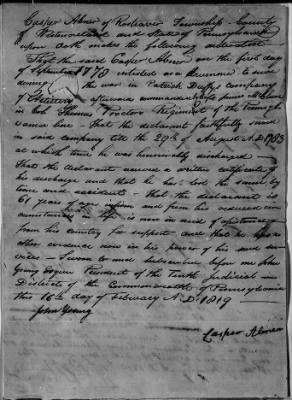 Casper Abner of Rostraver Township County
of Westmoreland and State of Pennsylvania
upon oath makes the following declaration
That the said Casper Abner on the first day
of September 1778 enlisted as a drummer to serve
during the war in Patrick Duffys company
of Artillery afterwards commanded by
in Col. Thomas Proctors Regiment of the Pennsyl
vania line That the declarant faithfully served
in said company till the 29th of August A.D. 1783
at which time he was honorably discharged
That the declarant received a written certificate of
his discharge and that he has lost the same by
time and accident that the declarant is
61 years of age infirm and from his reduced circum
in life is now in need of assistance
from his country for support and that he has no
other evidence now in his power of his said ser
vices Sworn to and subscribed before me John
Young Esquire President of the Tenth Judicial
District of the Commonwealth of Pennsylvania
this 16th day of February A.D. 1819
John Young
Casper Abner